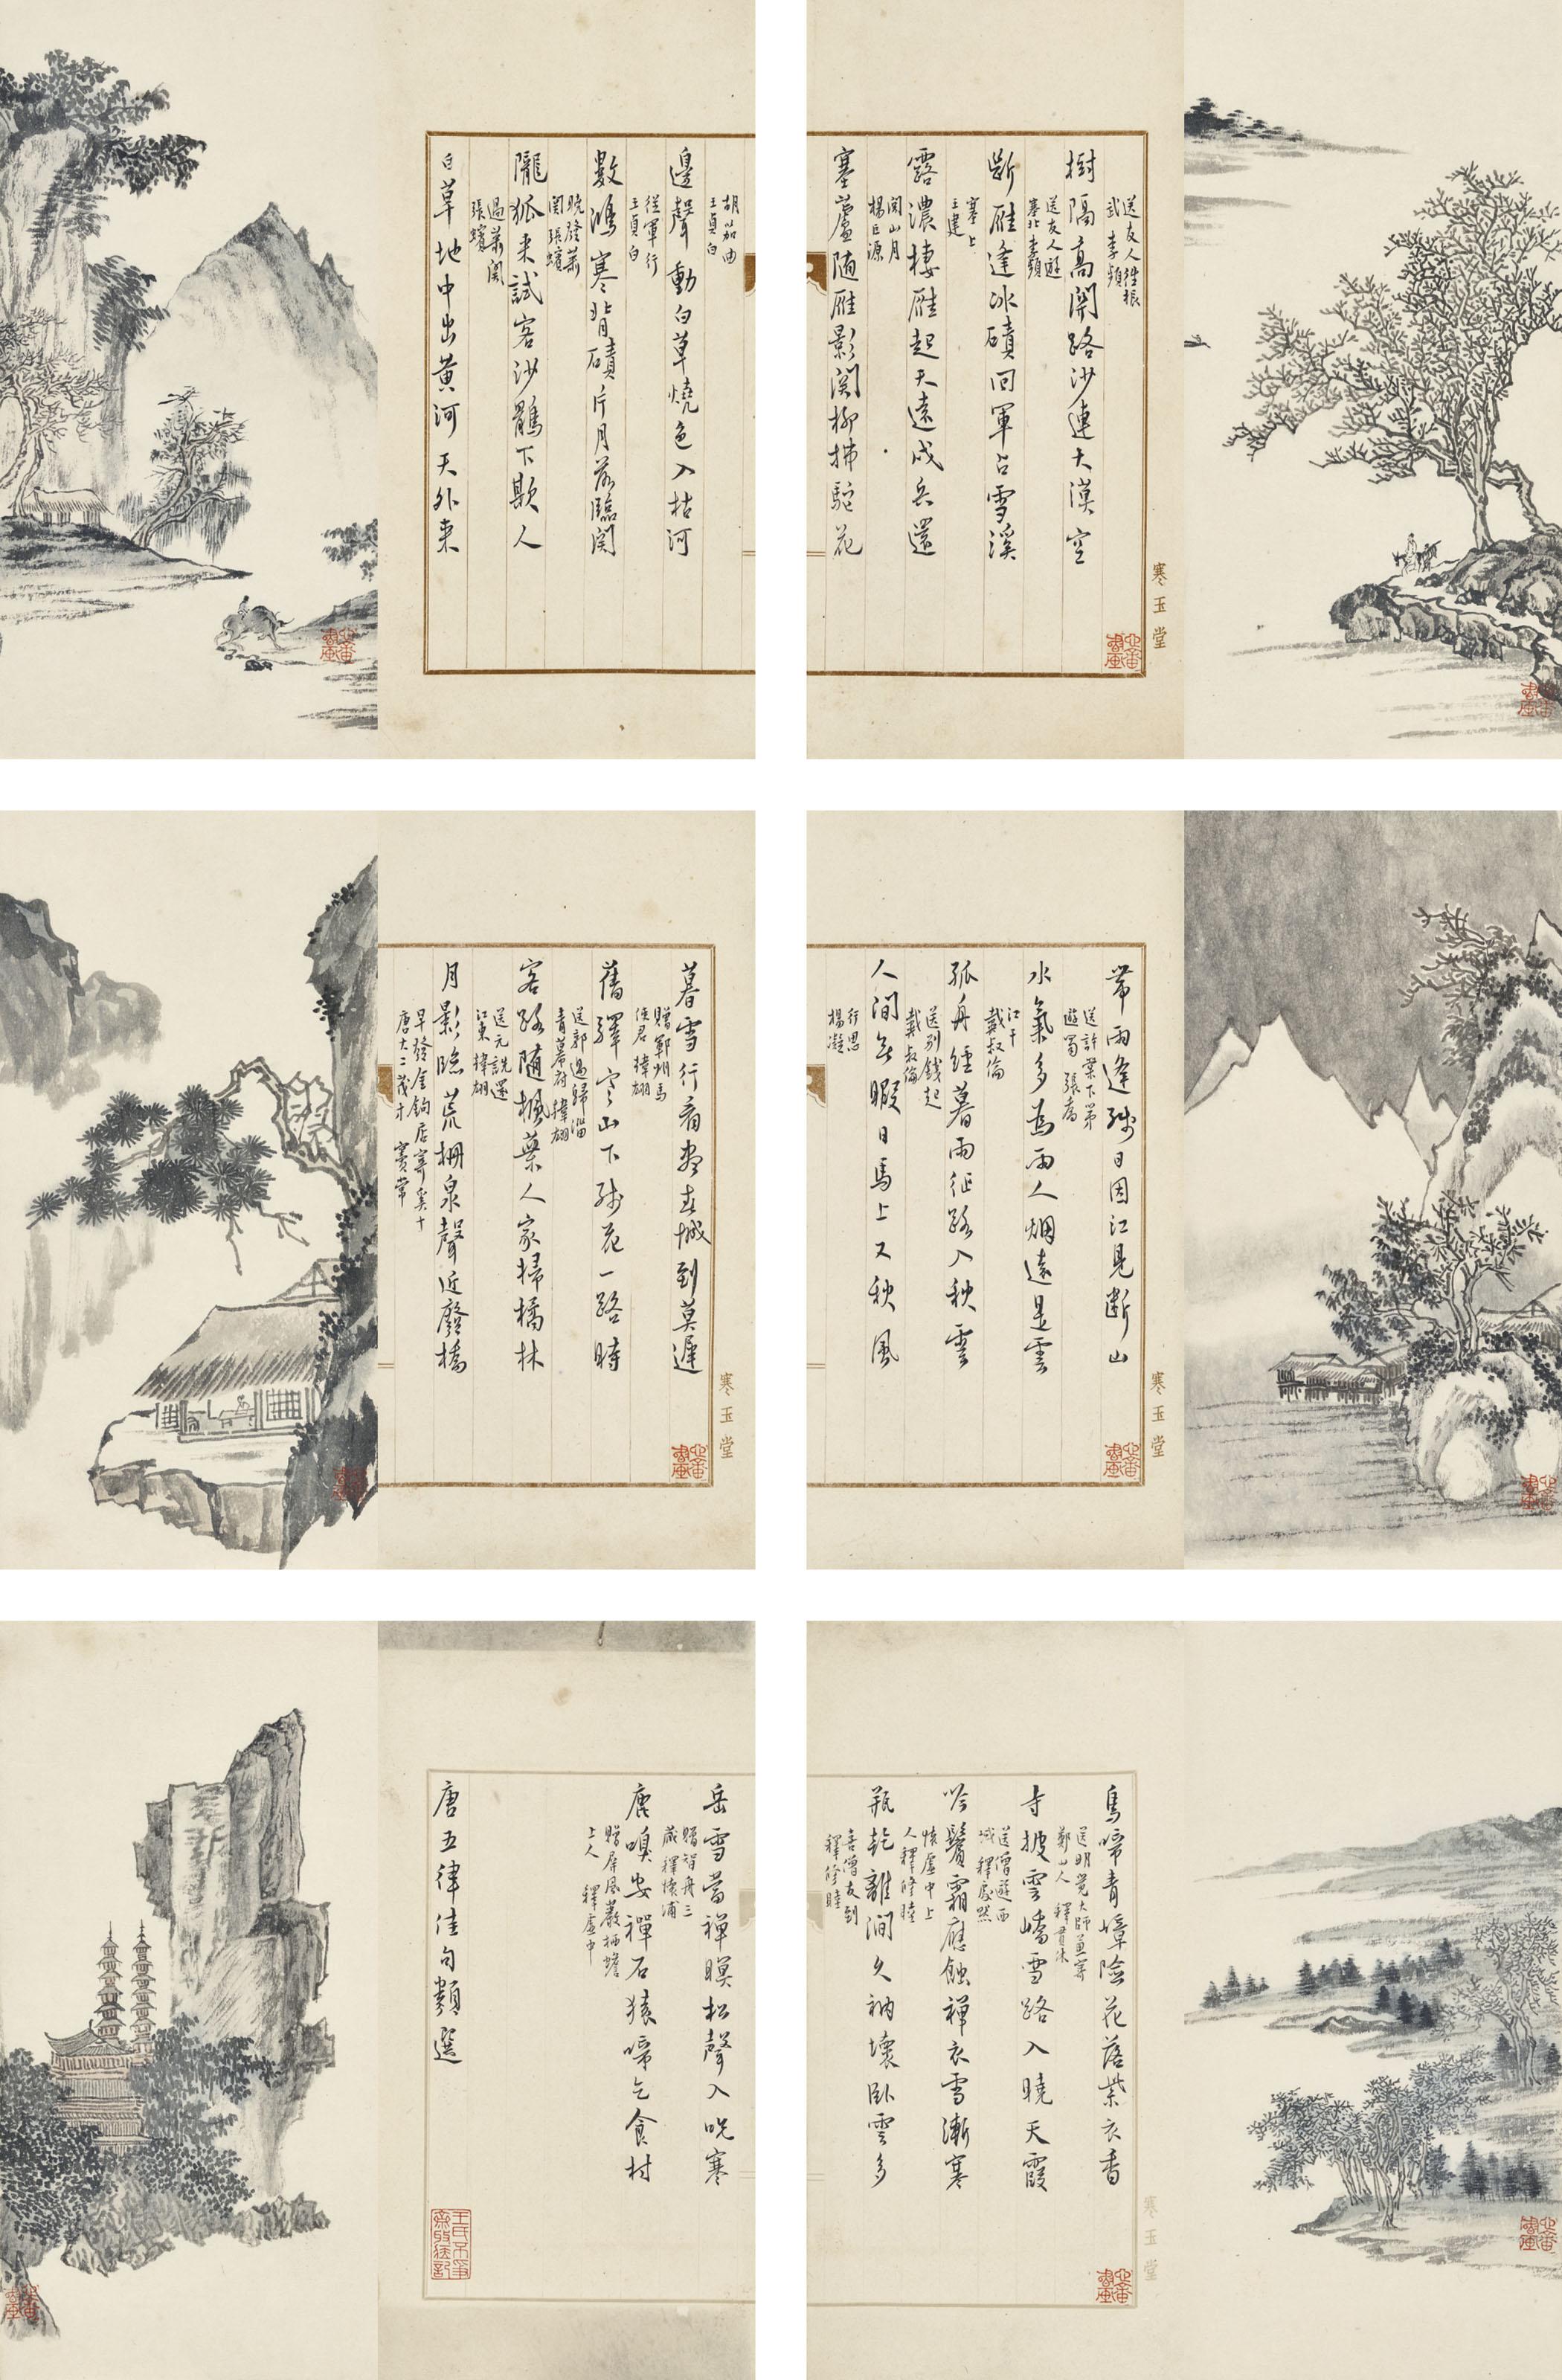 送友人往振
武 李頻
樹隔高關路沙連大漠空
送友人遊
塞北 李頻
斷雁逢冰磧回軍占雪溪
塞上
王建
露濃棲雁起天遠戍兵還
關山月
楊巨源
塞蘆隨雁影關柳拂駝花
寒玉堂
胡笳曲
王貞白
邊聲動白草燒色入枯河
從軍行
王貞白
數鴻寒背磧片月落臨關
曉發蕭
關 張蠙
隴狐來試客沙鶻下欺人
過蕭關
張蠙
白草地中出黃河天外來
寒玉堂
帶雨逢殘日因江見斷山
送許棠下第
遊蜀 張喬
水氣多為雨人烟遠是雲
江干
戴叔倫
孤舟經暮雨征路入秋雲
送別錢起
戴叔倫
人間無暇日馬上又秋風
行思
楊凝
寒玉堂
暮雪行看盡春城到莫遲
贈鄆州馬
使君 韓翃
舊驛寒山下殘花一路時
送郭過歸淄
青幕府 韓翃
客路隨楓葉人家掃橘林
送元詵還
江東 韓翃
月影臨荒柵泉聲近廢橋
早發金鉤店寄奚十
唐大二茂才 竇常
寒玉堂
鳥啼青嶂險花落紫衣香
送明覺大師兼寄
鄭山人 釋貫休
寺披雲嶠雪路入曉天霞
送僧遊西
域 釋處默
吟鬢霜應蝕禪衣雪漸寒
懷虛中上
人 釋修睦
瓶乾離澗久衲壞臥雲多
喜僧友到
釋修睦
岳雪當禪暝松聲入呪寒
贈智舟三
藏 釋懷浦
鹿嗅安禪石猿啼乞食村
贈屏風巖栖蟾
上人 釋虛中
唐五律佳句類選